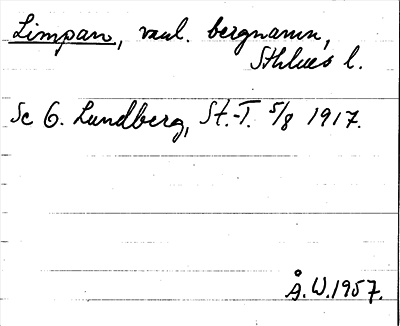 Limpan, vanl. bergnamn,
Sthlms l.
Se G. Lundberg, St.-T. 5/8 1917.
Å.W.1957.